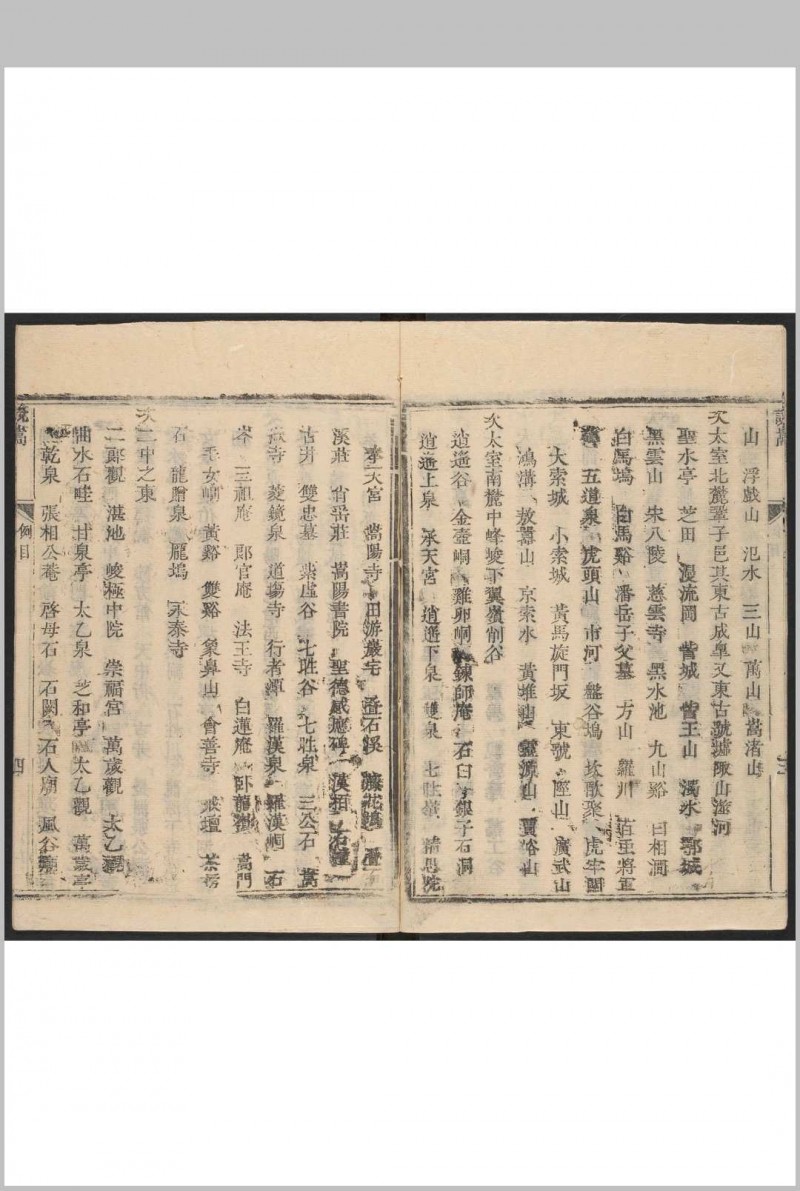 山 浮戲山 汜水 三山 萬山 嵩渚山
次太室北麓鞏子邑其東古成臯又東古虢墟陬山逰河
聖水亭 芝田 漫流岡 訾城 訾王山 濁水 鄂城
黑雲山 宋八陵 慈雲寺 黑水池 九山谿 白相澗
白馬塢 白馬谿 潘岳子父墓 方山 羅川 將軍
五道泉 虎頭山 市河 盤谷塢 坎欿聚 虎牢關
大索城 小索城 黃馬旋門坂 東虢 陘山 廣武山
鴻溝 敖嚻山 京索水 黃堆山 靈源山 賈峪山
次太室南麓中峰峻下翼嶺削谷
逍遙谷 金壺峒 雞卵峒 鍊師庵 石臼 銀子石洞
逍遙上泉 承天宮 逍遙下泉 雙泉 七 精思院
奉天宮 嵩陽寺 田游巖宅 叠石溪
溪莊 莊 嵩陽書院 聖德感應碑 漢栢 石
古井 雙忠墓 紫虛谷 七泉 三公石 嵩
寺 菱鏡泉 道塲寺 行者 羅漢泉 羅漢峒 石
三祖庵 郎官庵 法王寺 白蓮庵 臥龍 嵩門
玉女 黃谿 雙谿 象鼻山 會善寺 戒壇 茶
石 龍贈泉 塢 永泰寺
次二中之東
二郎觀 湛池 峻極中院 崇福宮 萬歲觀 太乙觀
水石畦 甘泉亭 太乙泉 芝和亭 太乙觀 萬歲亭
乾泉 張相公菴 啓母石 石闕 石人廟 風谷
說嵩
例目
四